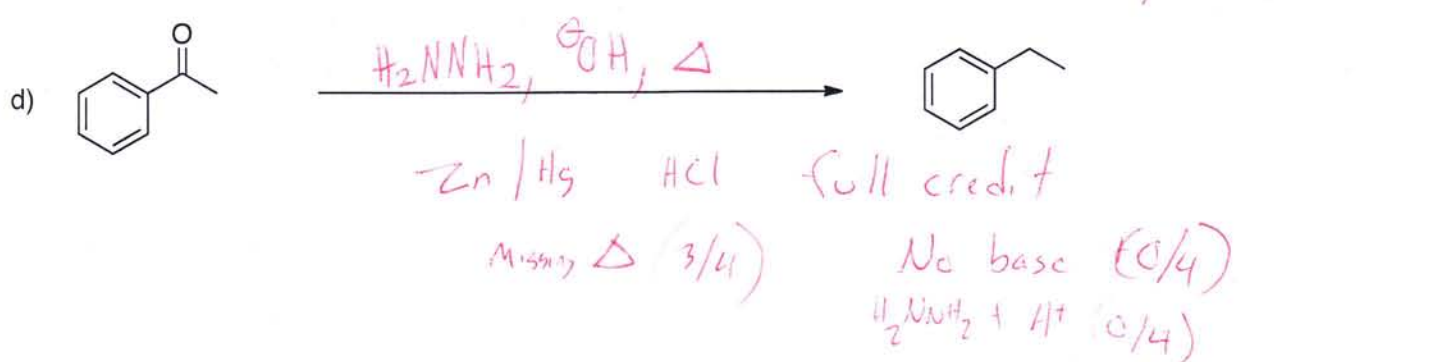 O
H₂NNH₂, ⊖OH, Δ
d)
Zn/Hg HCl full credit
Missing Δ (3/4) No base (0/4)
H₂NNH₂ + H⁺ (0/4)